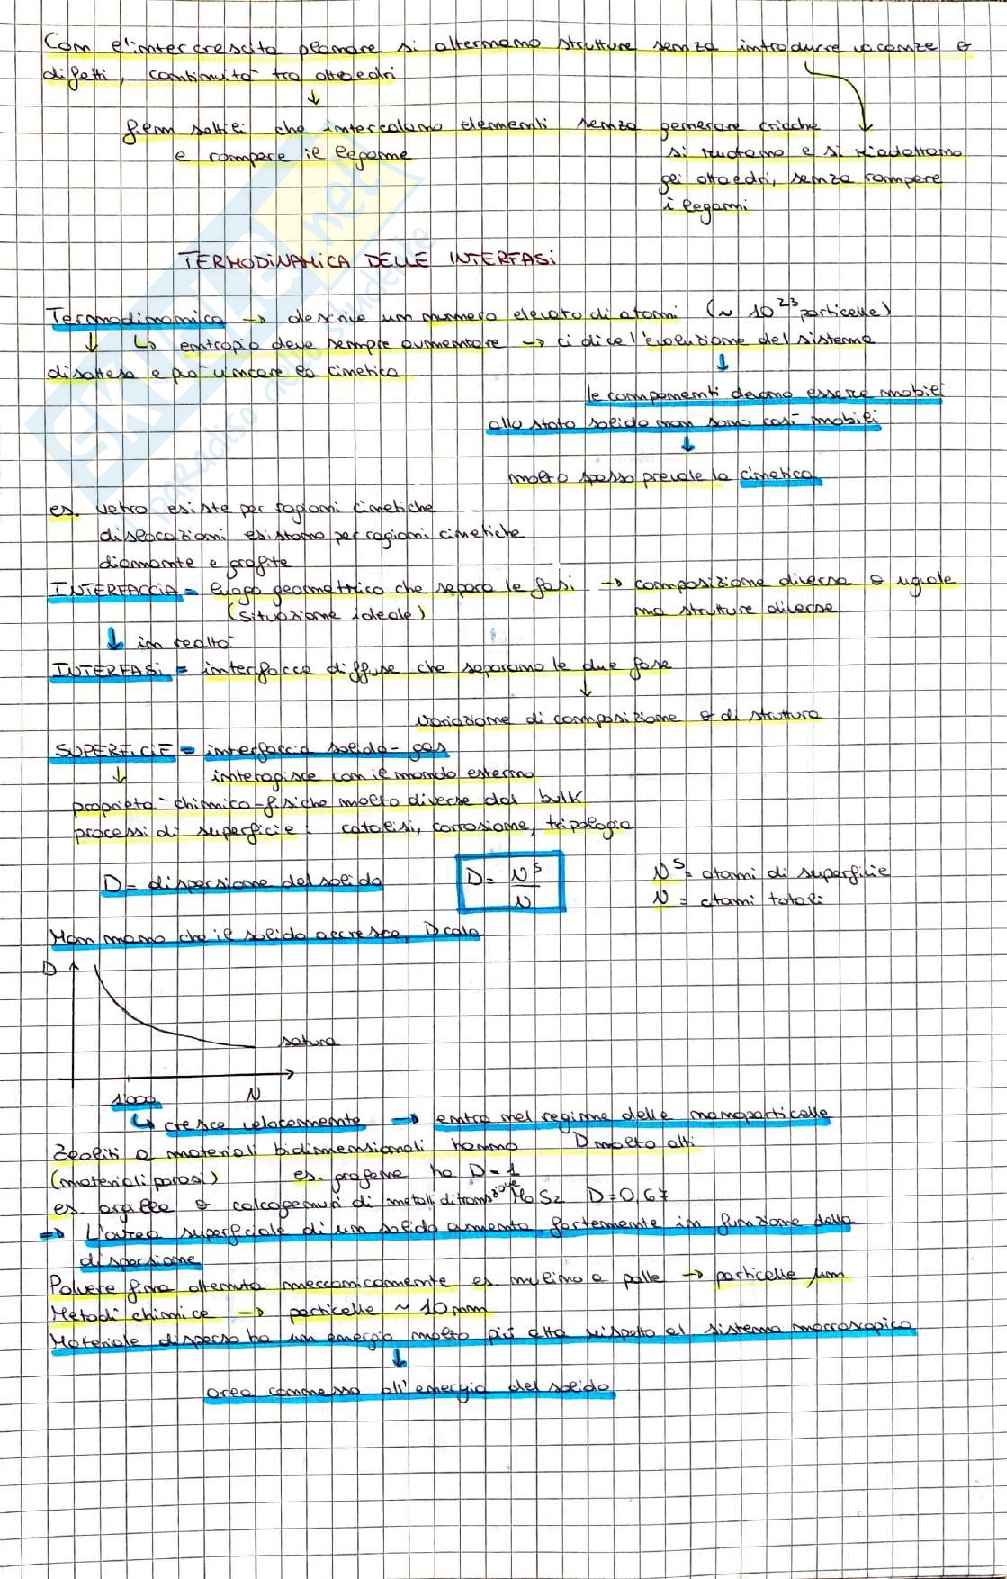 Con l'intercrescita planare si alternano strutture senza introdurre vacanze e
difetti, continuità tra ottaedri
↓
fenn solidi che intercalano elementi senza generare cricche
e rompere il legame
si ruotano e si riadattano
gli ottaedri, senza rompere
i legami
TERMODINAMICA DELLE INTERFASI
Termodinamica → descrive un numero elevato di atomi (~ 10²³ particelle)
↓ ↳ entropia deve sempre aumentare → ci dice l'evoluzione del sistema
disattesa e può vincere la cinetica
↓
le componenti devono essere mobili
allo stato solido non sono così mobili
↓
molto spesso prevale la cinetica
es. vetro esiste per ragioni cinetiche
dislocazioni esistono per ragioni cinetiche
diamante e grafite
INTERFACCIA = luogo geometrico che separa le fasi → composizione diversa o uguale
(situazione ideale) ma strutture diverse
↓ in realtà
INTERFASI = interfacce diffuse che separano le due fase
↓
variazione di composizione e di struttura
SUPERFICIE = interfaccia solido-gas
↓ interagisce con il mondo esterno
proprietà chimico-fisiche molto diverse dal bulk
processi di superficie: catalisi, corrosione, tripologia
D = dispersione del solido D = Nˢ/N Nˢ = atomi di superficie
N = atomi totali
Man mano che il solido accresce, D cala
D
satura
1000 N
↳ cresce velocemente → entra nel regime delle nanoparticelle
Zeoliti o materiali bidimensionali hanno D molto alti
(materiali porosi) es. grafene ha D = 1
es. argille o calcogenuri di metalli di transizione MoS₂ D = 0,67
⇒ L'area superficiale di un solido aumenta fortemente in funzione della
dispersione
Polvere fine ottenuta meccanicamente es mulino a palle → particelle µm
Metodi chimici → particelle ~ 10 nm
Materiale disperso ha un energia molto più alta rispetto al sistema macroscopico
↓
area connessa all'energia del solido